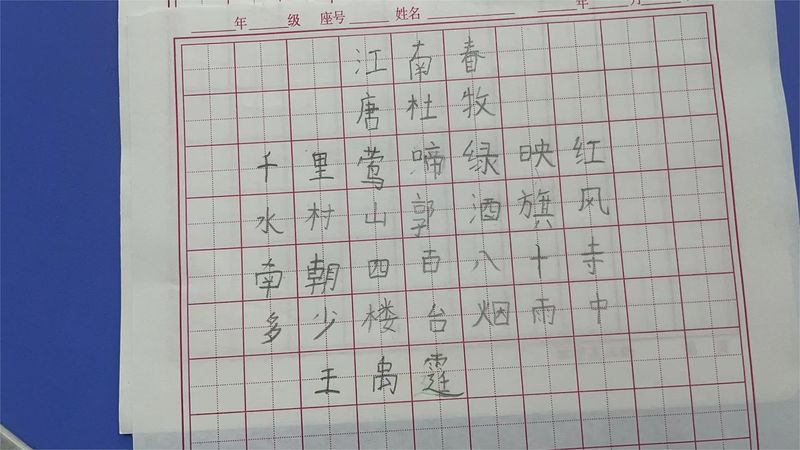 年 级 座号 姓名 年 月
江南春
唐杜牧
千里莺啼绿映红
水村山郭酒旗风
南朝四百八十寺
多少楼台烟雨中
王禹霆